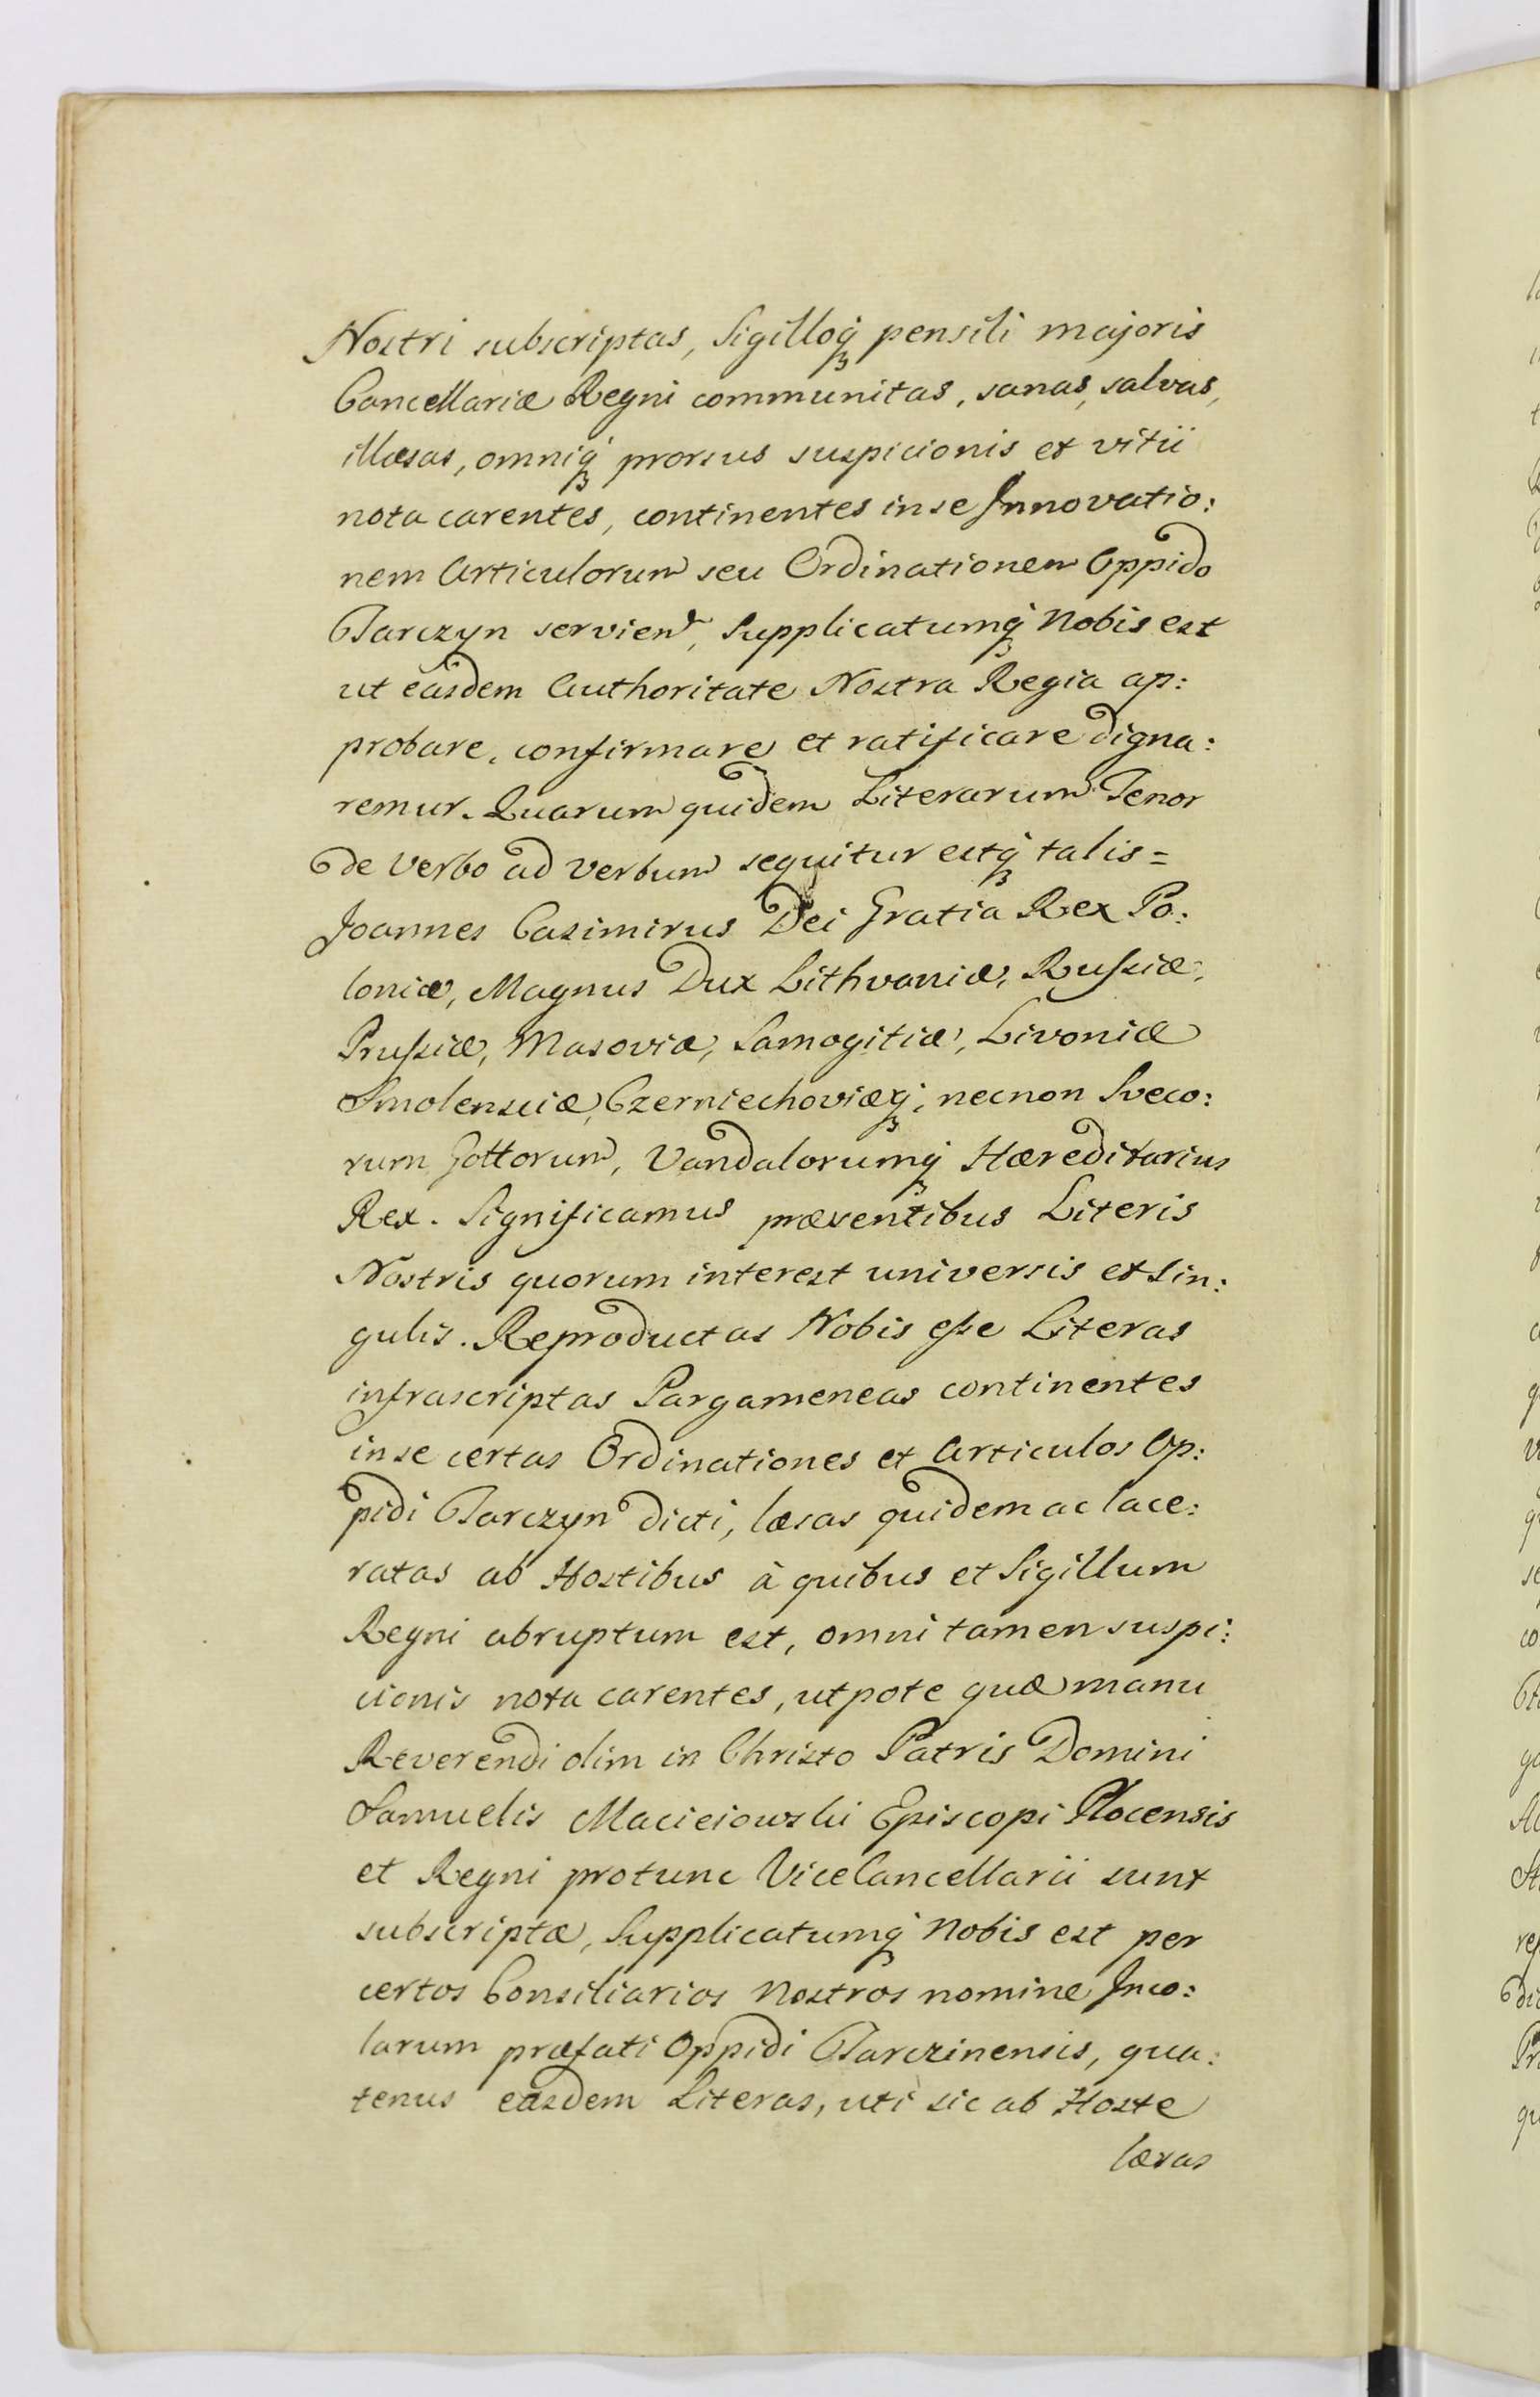 Nostri subscriptas, Sigilloq́ꝫ pensili majoris
Cancellariæ Regni communitas, sanas, salvas,
illæsas, omniq́ꝫ prorsus suspicionis et vitii
nota carentes, continentes in se Innovatio:
nem Articulorum seu Ordinationem Oppido
Tarczyn servien, Supplicatumq́ꝫ Nobis est
ut easdem Authoritate Nostra Regia ap:
probare, confirmare et ratificare digna:
remur. Quarum quidem Literarum Tenor
de verbo ad verbum sequitur estq́ꝫ talis =
Joannes Casimirus Dei Gratia Rex Po:
loniæ, Magnus Dux Lithvaniæ, Russiæ,
Prussiæ, Masoviæ, Samogitiæ, Livoniæ
Smolensciæ, Czerniechoviæq́ꝫ, necnon Sveco:
rum Gottorum, Vandalorumq́ꝫ Hæreditarius
Rex. Significamus præsentibus Literis
Nostris quorum interest universis et sin:
gulis. Reproductas Nobis esse Literas
infrascriptas Pargameneas continentes
in se certas Ordinationes et Articulos Op:
pidi Tarczyn dicti, læsas quidem ac lace:
ratas ab Hostibus à quibus et Sigillum
Regni abruptum est, omni tamen suspi:
cionis nota carentes, utpote quæ manu
Reverendi olim in Christo Patris Domini
Samuelis Macieiowski Episcopi Plocensis
et Regni protunc ViceCancellarii sunt
subscriptæ, Supplicatumq́ꝫ Nobis est per
certos Consiliarios Nostros nomine Inco:
larum præfati Oppidi Tarczinensis, qua:
tenus easdem Literas, uti sic ab Hoste
læsas